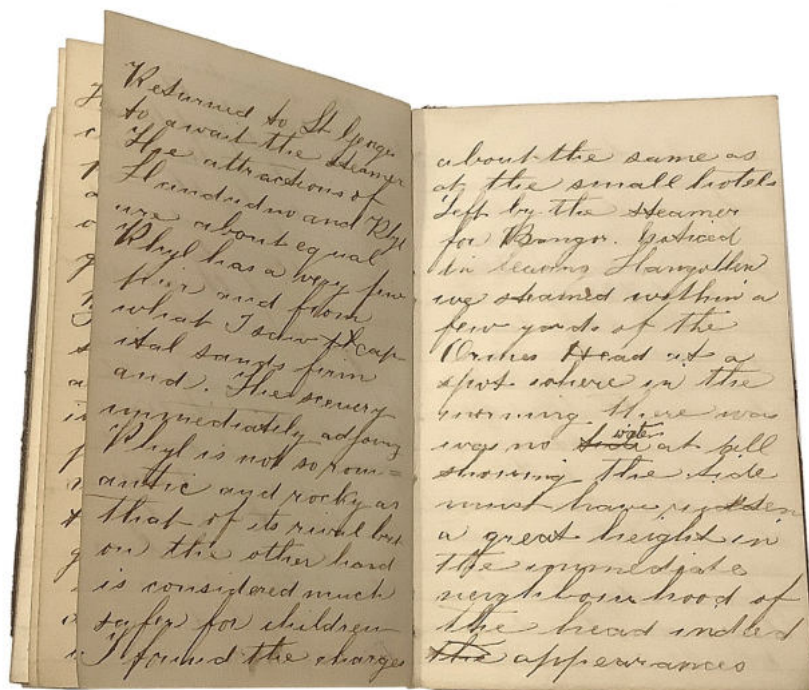 Returned to St Georges
to await the steamer
The attractions of
Llandudno and Rhyl
are about equal
Rhyl has a very fine
pier and from
what I saw cap
ital sands firm
and. The scenery
immediately adjoing
Rhyl is not so rom=
antic and rocky as
that of its rival but
on the other hand
is considered much
safer for children
I found the charges
about the same as
at the small hotels
Left by the steamer
for Bangor. Noticed
in leaving Llangollen
we steamed within a
few yards of the
Ormes Head at a
spot where in the
morning there was
was no water at all
showing the tide
must have risen
a great height in
the immediate
neighbourhood of
the head indeed
the appearances